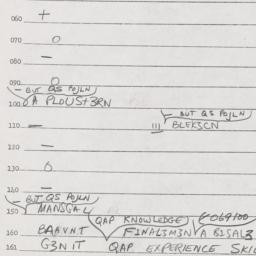 060 +
070 O
080 —
090 O
BUT QS POJLN
100 A PLOUST3RN
BUT QS POJLN
110 — !!! BLEK3CN
120 O
130 —
BUT QS POJLN
150 MANSGAL
QAP KNOWLEDGE
160 BAAVNT FINAL3M3N A BISAL3
161 G3NIT QAP EXPERIENCE SKIL